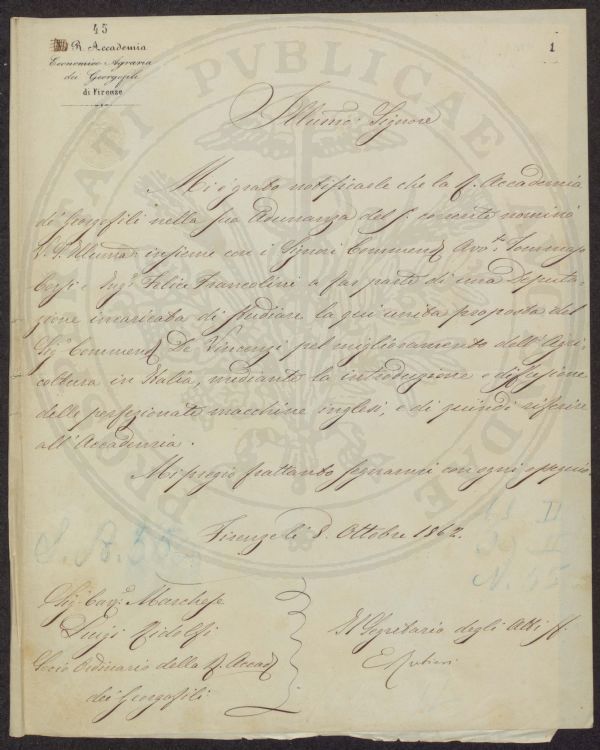 45
R. Accademia
1
Economico-Agraria
dei Georgofili
di Firenze
PUBLICAE
Illumo. Signore
Mi è grato notificarle che la R. Accademia
de' Georgofili nella sua Adunanza del 5. corrente nominò
V. S. Illuma. insieme con i Signori Commend. Avvto. Tommaso
Corsi e Ingre. Felice Francolini a far parte di una Deputa-
zione incaricata di studiare la qui unita proposta del
Sigr. Commend. De Vincenzi pel miglioramento dell'Agri-
coltura in Italia, mediante la introduzione e diffusione
delle perfezionate macchine inglesi, e di quindi riferire
all'Accademia.
Mi pregio frattanto segnarmi con ogni ossequio.
Firenze li 8. Ottobre 1862.
Sigr. Cavr. Marchese
Luigi Ridolfi
Socio Ordinario della R. Accad.
dei Georgofili
Il Segretario degli Atti ff.